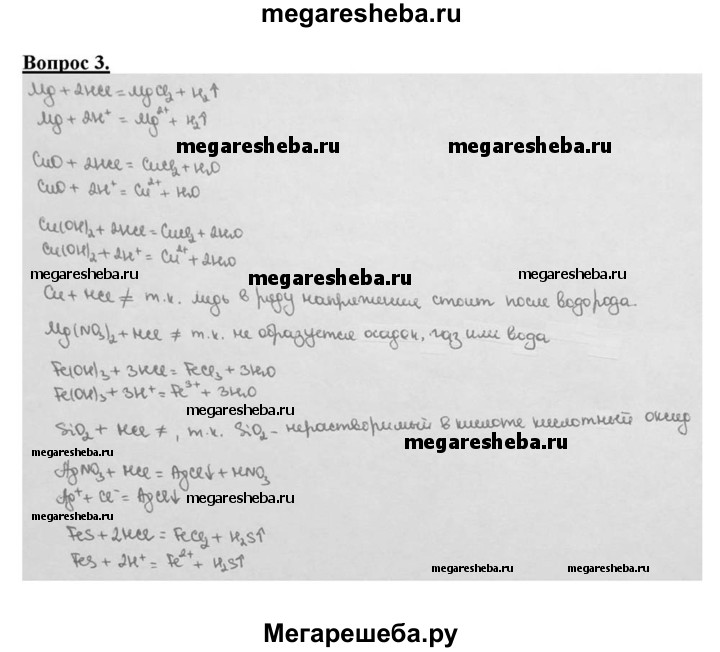 megaresheba.ru
Вопрос 3.
Mg + 2HCl = MgCl₂ + H₂↑
Mg + 2H⁺ = Mg²⁺ + H₂↑
megaresheba.ru megaresheba.ru
CuO + 2HCl = CuCl₂ + H₂O
CuO + 2H⁺ = Cu²⁺ + H₂O
Cu(OH)₂ + 2HCl = CuCl₂ + 2H₂O
Cu(OH)₂ + 2H⁺ = Cu²⁺ + 2H₂O
megaresheba.ru megaresheba.ru megaresheba.ru
Cu + HCl ≠ т.к. медь в ряду напряжения стоит после водорода.
Mg(NO₃)₂ + HCl ≠ т.к. не образуется осадок, газ или вода
Fe(OH)₃ + 3HCl = FeCl₃ + 3H₂O
Fe(OH)₃ + 3H⁺ = Fe³⁺ + 3H₂O
megaresheba.ru
SiO₂ + HCl ≠, т.к. SiO₂ - нерастворимый в кислоте кислотный оксид
megaresheba.ru
megaresheba.ru
AgNO₃ + HCl = AgCl↓ + HNO₃
Ag⁺ + Cl⁻ = AgCl↓ megaresheba.ru
megaresheba.ru
FeS + 2HCl = FeCl₂ + H₂S↑
FeS + 2H⁺ = Fe²⁺ + H₂S↑
megaresheba.ru megaresheba.ru
Мегарешеба.ру